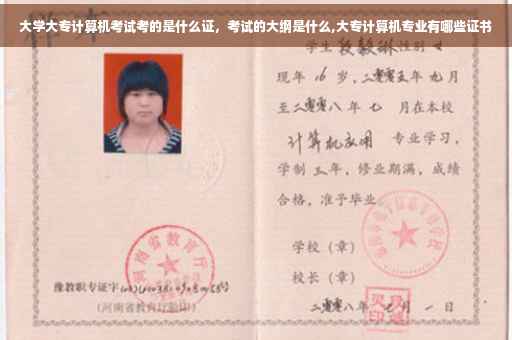 大学大专计算机考试考的是什么证，考试的大纲是什么,大专计算机专业有哪些证书
学生 段毅琳 性别 女
现年 16 岁，二零零五年 九月
至二零零八年 七 月在本校
计算机应用 专业学习，
学制 三年，修业期满，成绩
合格，准予毕业
学校（章）
校长（章）
二零零八年 七月 一 日
河南省教育厅
豫教职专证字
（河南省教育厅验印）